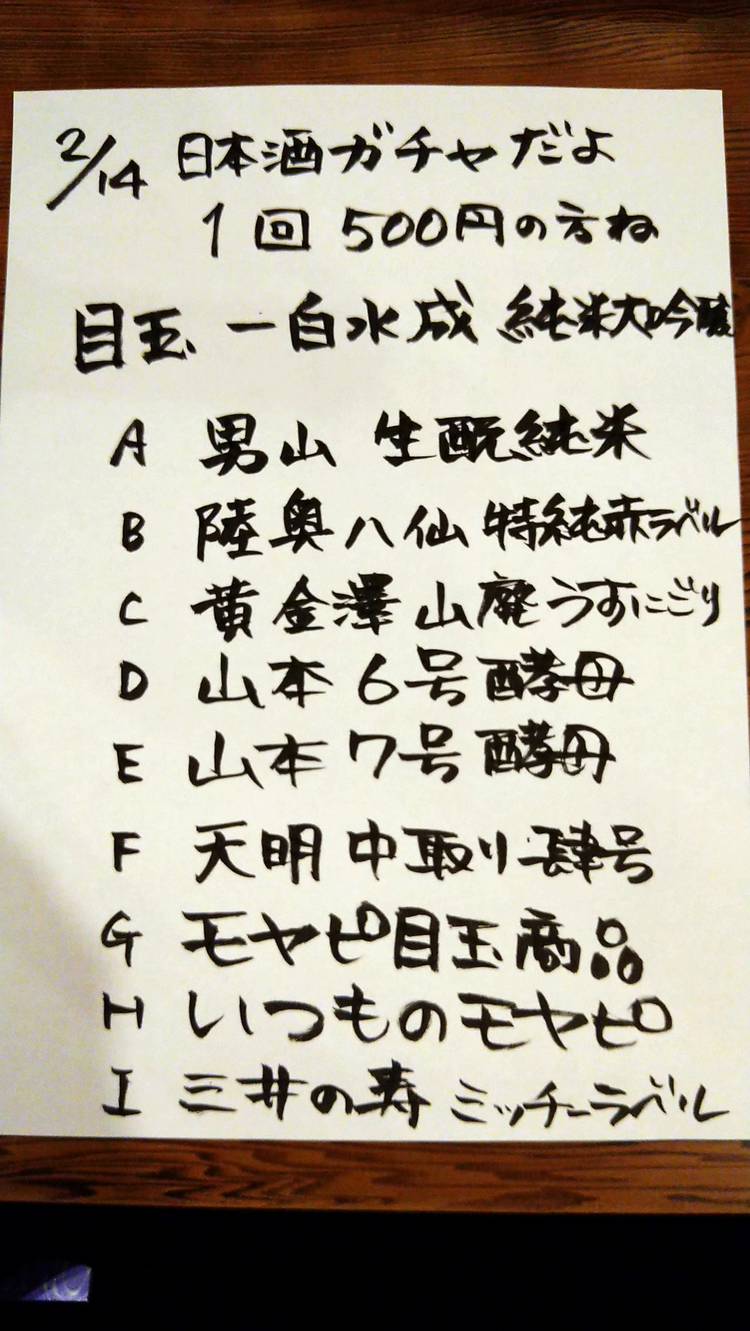 2/14 日本酒ガチャだよ
1回 500円の方ね
目玉 一白水成 純米大吟醸
A 男山 生酛純米
B 陸奥八仙 特純赤ラベル
C 黄金澤 山廃うすにごり
D 山本 6号酵母
E 山本 7号酵母
F 天明 中取り 肆号
G モヤピ目玉商品
H いつものモヤピ
I 三井の寿 ミッチーラベル